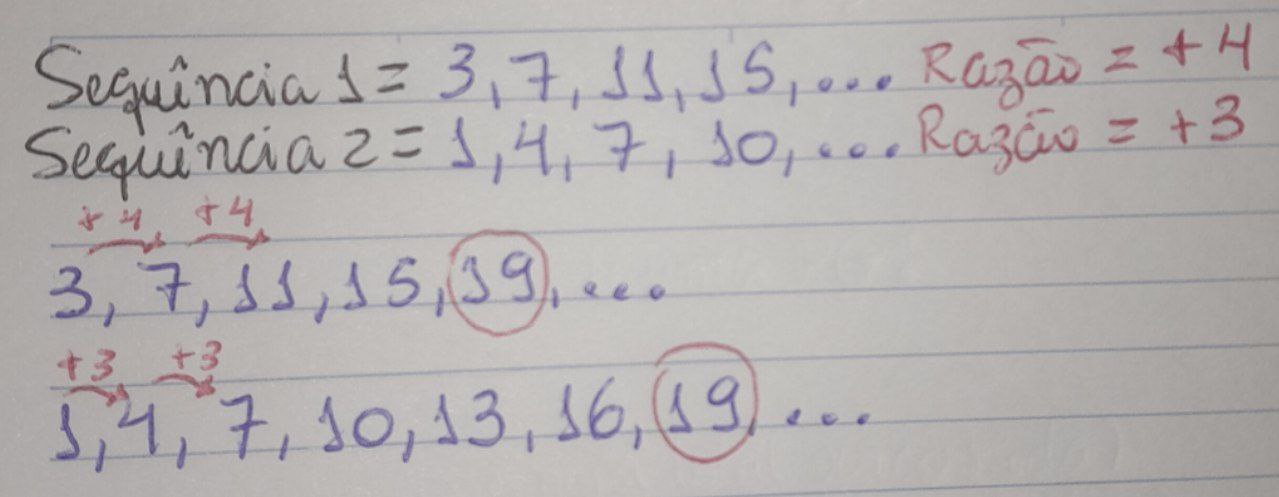 Sequência 1 = 3, 7, 11, 15, ... Razão = +4
Sequência 2 = 1, 4, 7, 10, ... Razão = +3
+4 +4
3, 7, 11, 15, 19, ...
+3 +3
1, 4, 7, 10, 13, 16, 19, ...